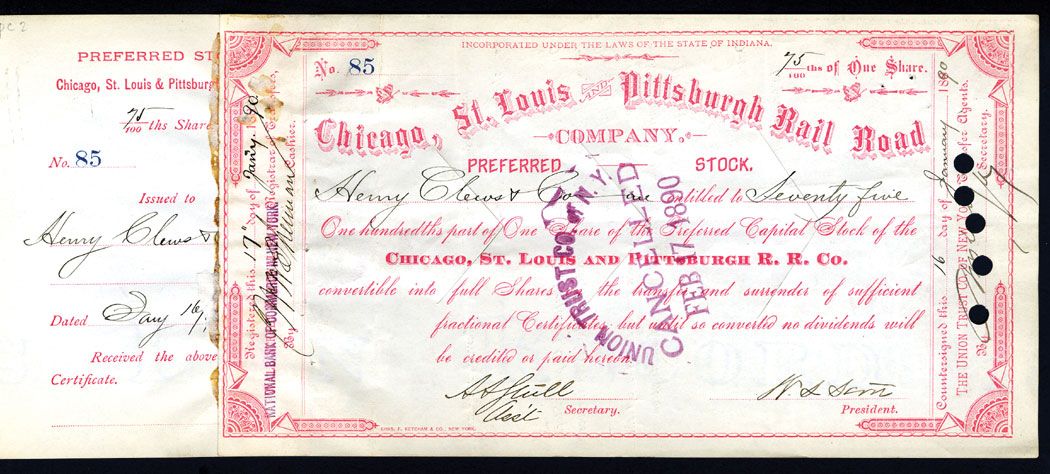 PREFERRED ST
Chicago, St. Louis & Pittsburg
75/100 ths Share
No. 85
Issued to
Henry Clews &
Dated Jany 16,
Received the above
Certificate.
Registered this 17" day of Jany. 1890
NATIONAL BANK OF COMMERCE IN NEW YORK
Registrar of Transfers,
By
Cashier.
INCORPORATED UNDER THE LAWS OF THE STATE OF INDIANA.
No. 85
75/100 ths of One Share.
Chicago, St. Louis AND Pittsburgh Rail Road
COMPANY.
PREFERRED STOCK.
Henry Clews & Co are entitled to Seventy five
One hundredths part of One Share of the Preferred Capital Stock of the
CHICAGO, ST. LOUIS AND PITTSBURGH R. R. CO.
convertible into full Shares on the transfer and surrender of sufficient
fractional Certificates, but until so converted no dividends will
be credited or paid hereon.
Asst Secretary.
President.
LOUIS, F. KETCHAM & CO., NEW YORK.
UNION TRUST CO. OF N. Y.
CANCELLED
FEB 17 1890
Countersigned this 16 day of January 1890
THE UNION TRUST CO. OF NEW YORK
Transfer Agents.
By
Secretary.